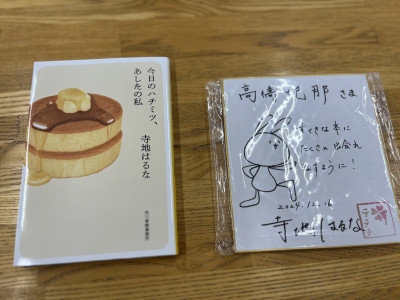 今日のハチミツ、
あしたの私
寺地はるな
角川春樹事務所
高橋 那 さま
すてきな本に
たくさん出会え
ますように!
2024.12.16
寺地はるな